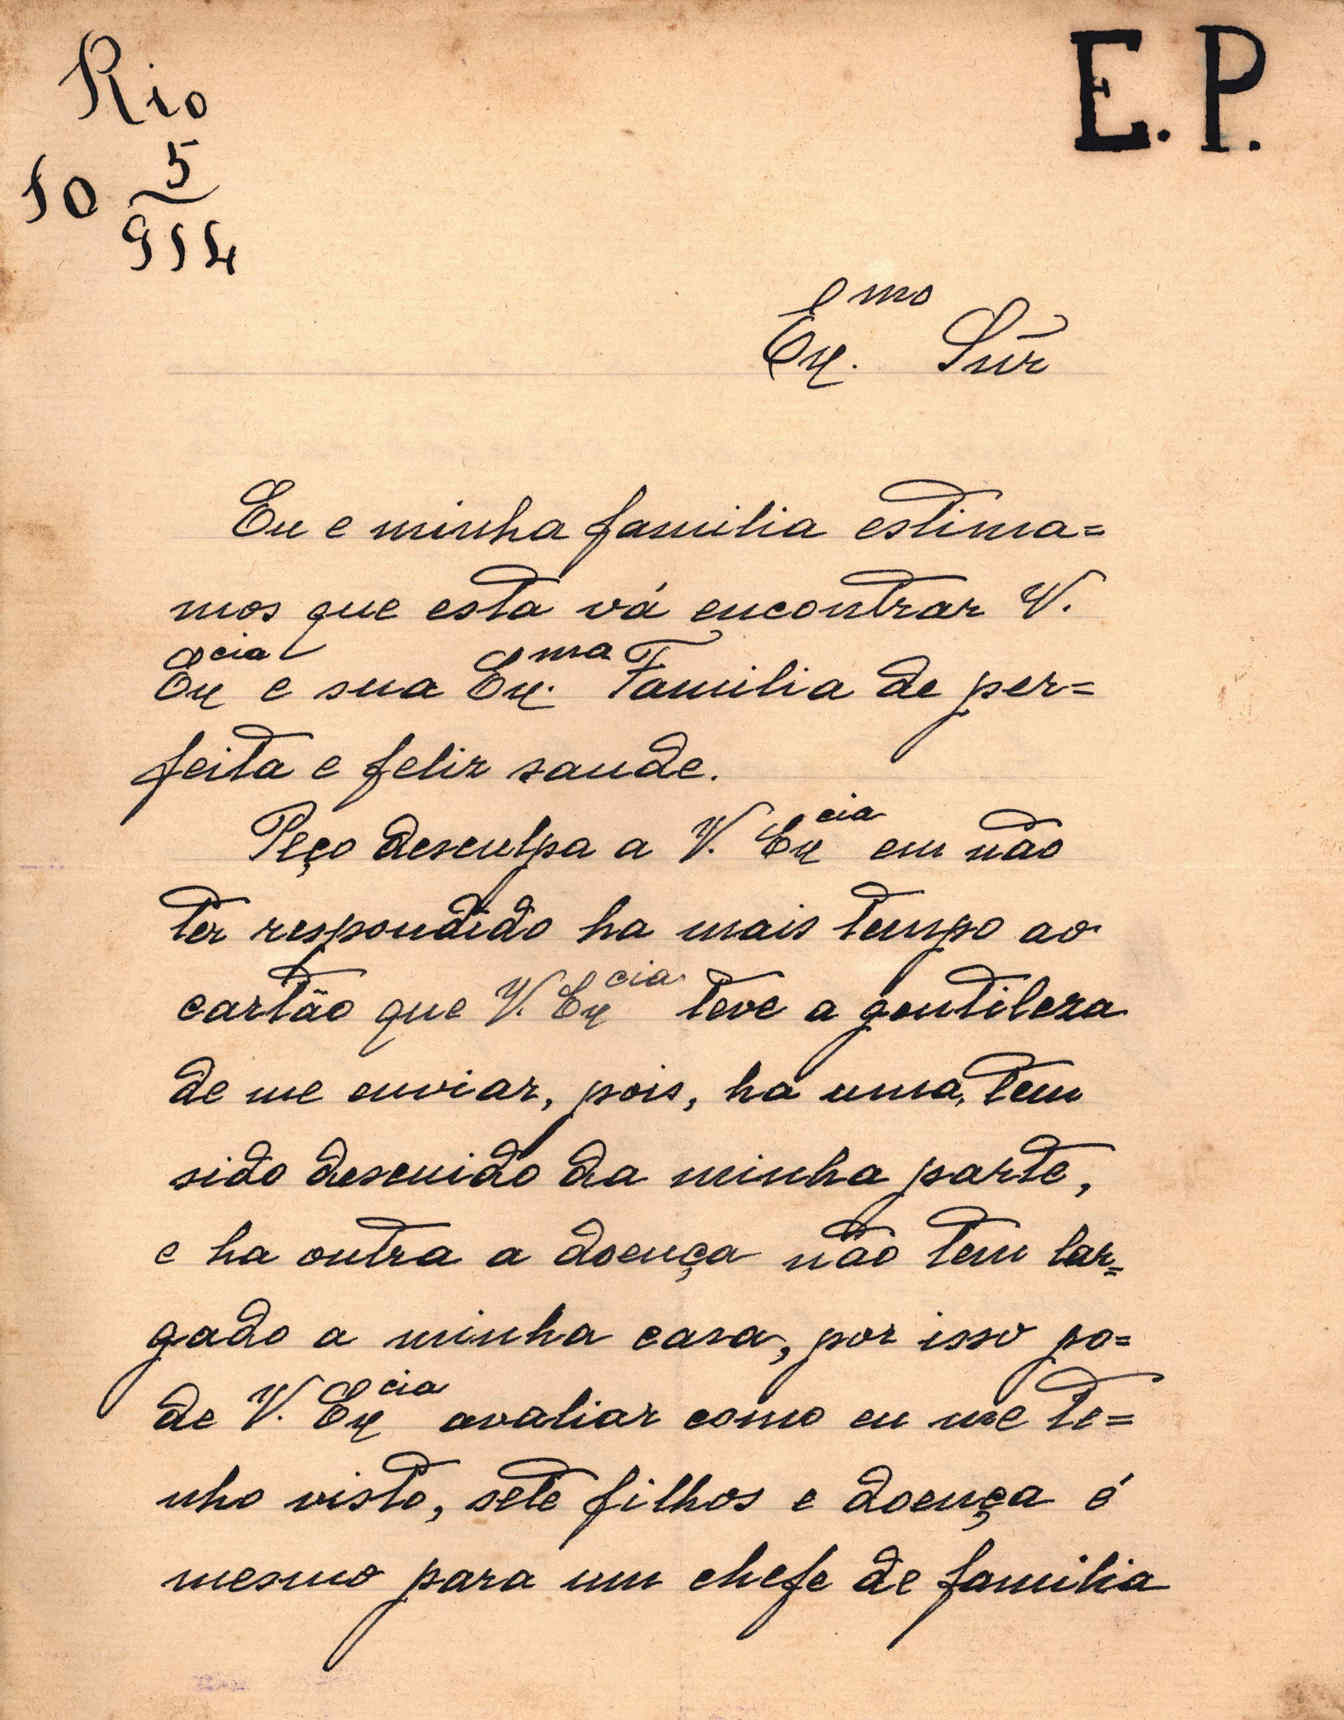 Rio
E. P.
10 5/914
Ex.mo Snr̃
Eu e minha familia estima=
mos que esta vá encontrar V.
Excia e sua Ex.ma Familia de per=
feita e feliz saude.
Peço desculpa a V. Excia em não
ter respondido ha mais tempo ao
cartão que V. Excia teve a gentileza
de me enviar, pois, ha uma, tem
sido descuido da minha parte,
e ha outra a doença não tem lar=
gado a minha casa, por isso po=
de V. Excia avaliar como eu me te=
nho visto, sete filhos e doença é
mesmo para um chefe de familia